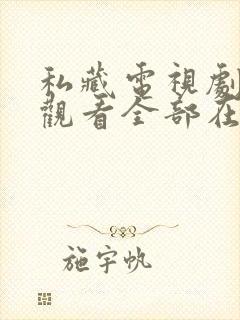 私藏電視劇
觀看全部在
施宇帆